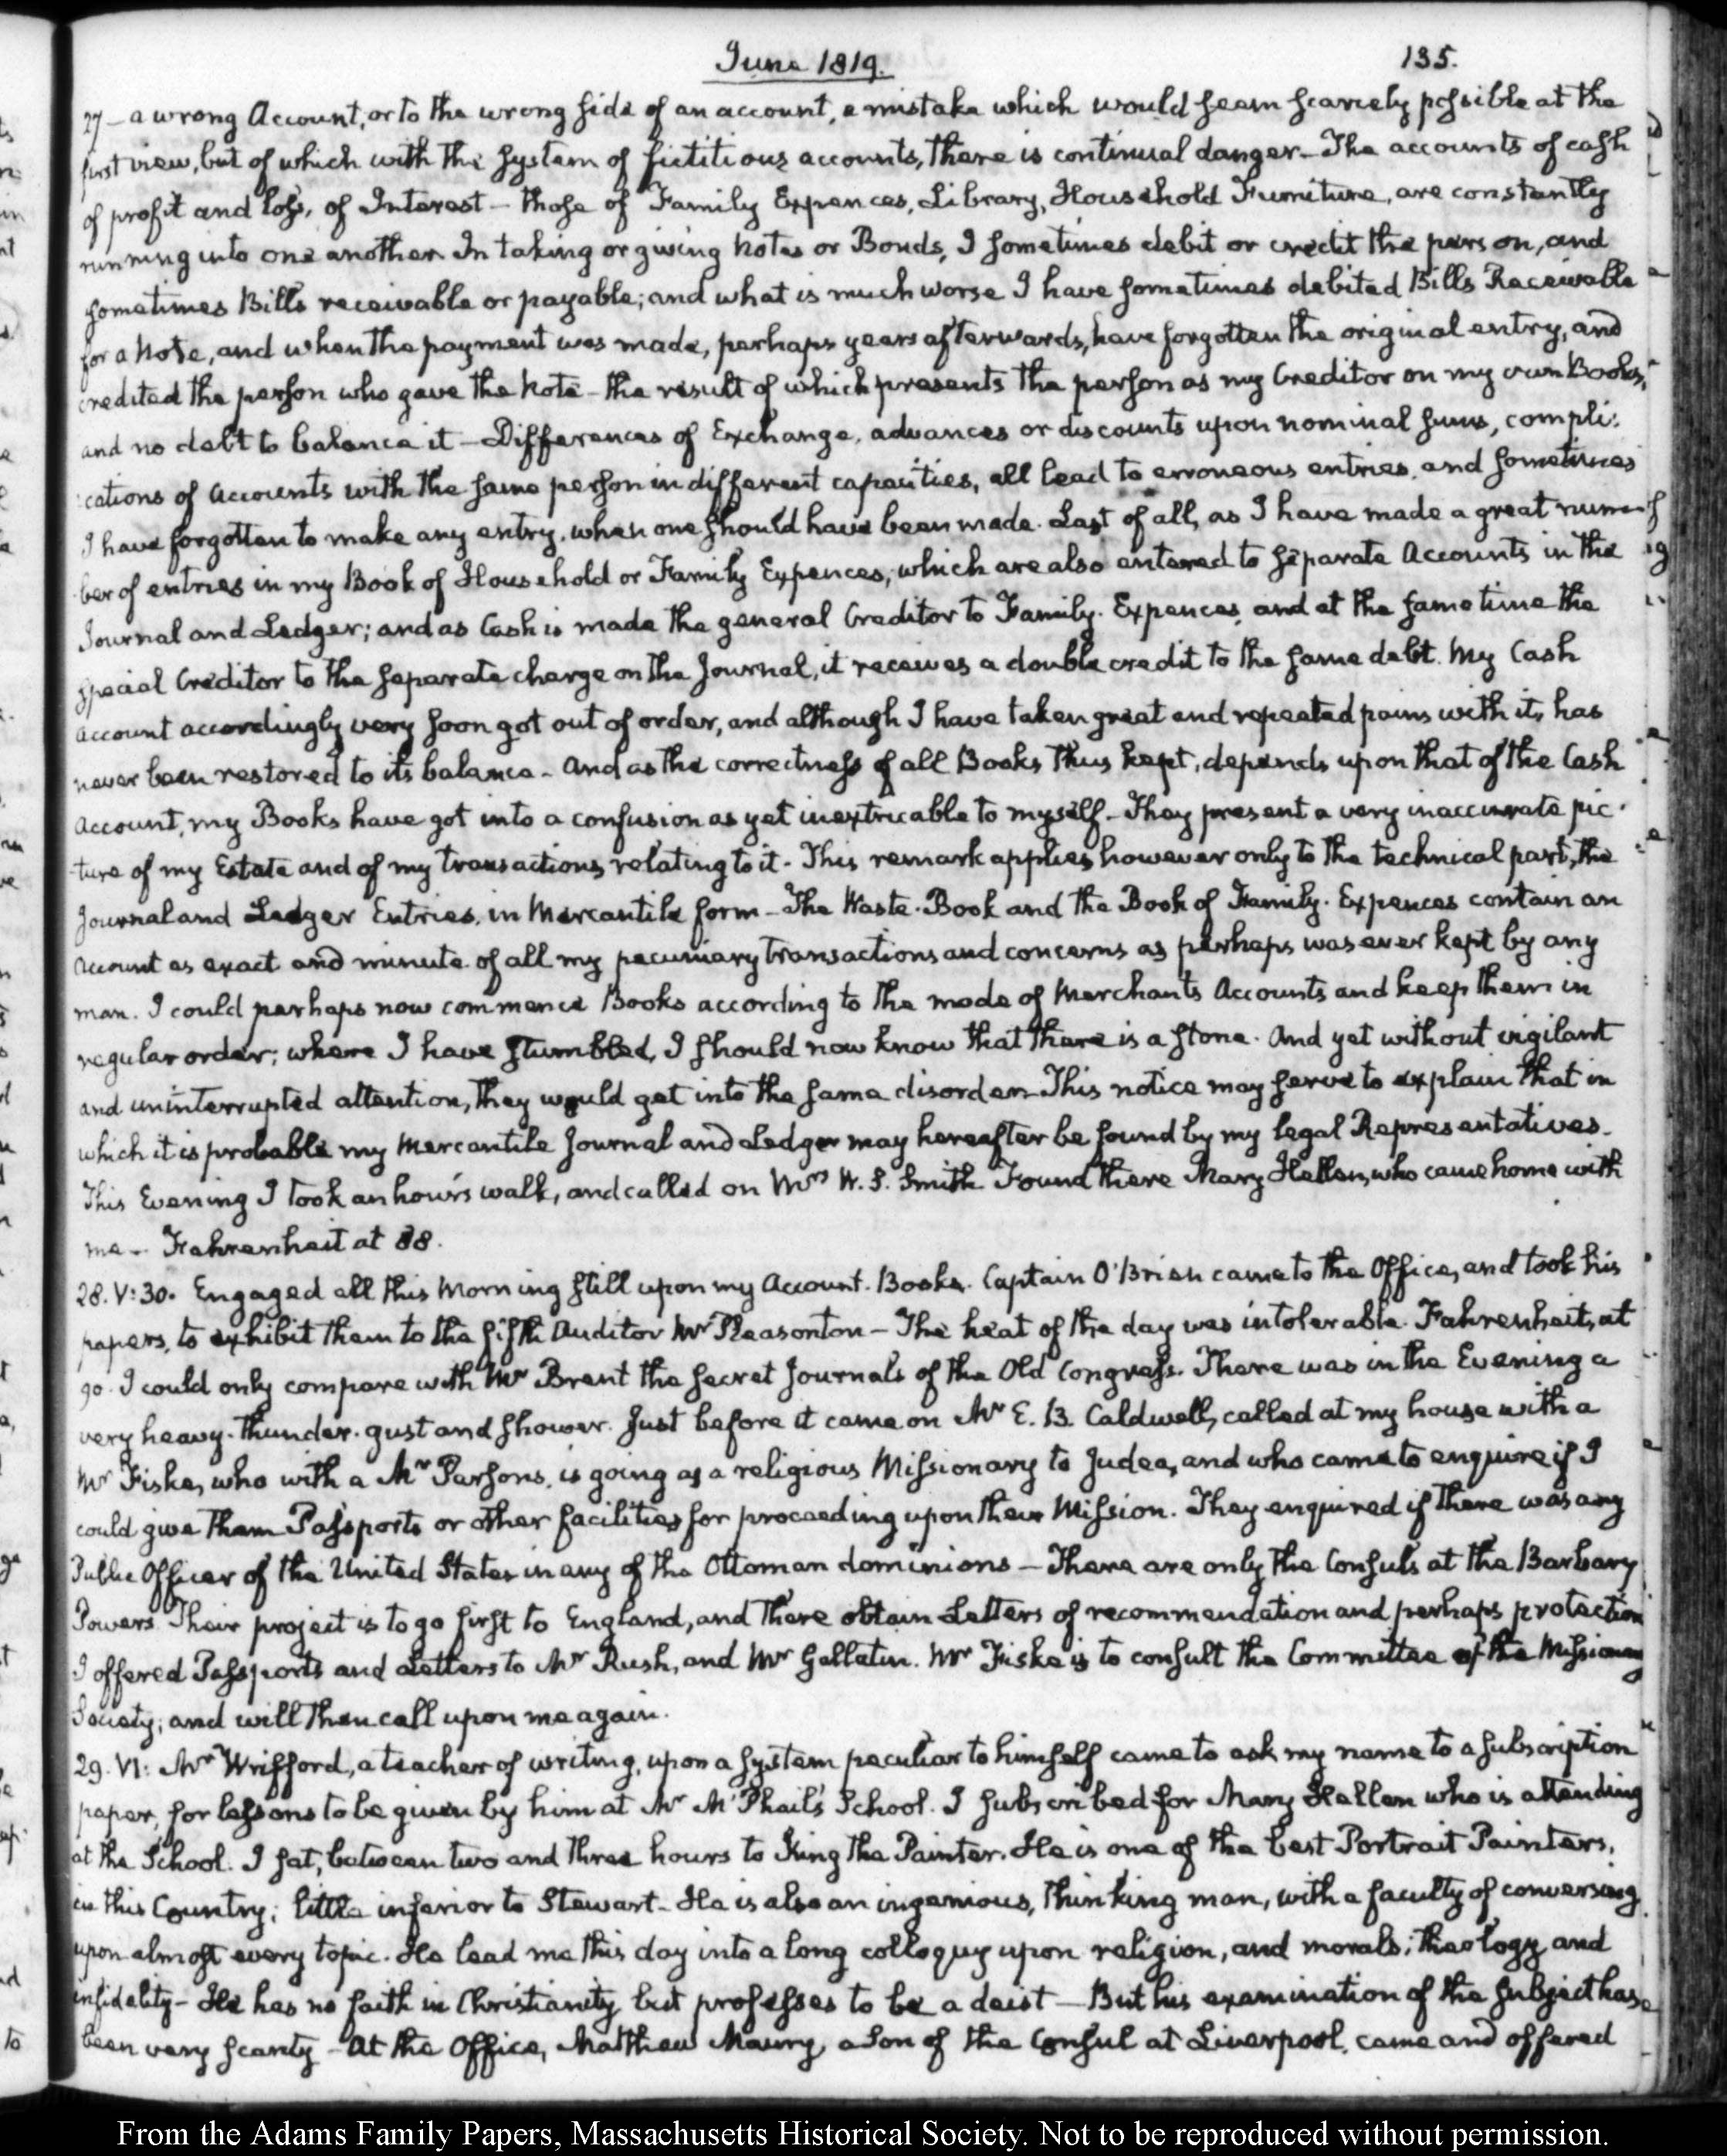 June 1819. 135.
27 — a wrong Account, or to the wrong side of an account, a mistake which would seem scarcely possible at the
first view, but of which with the system of fictitious accounts, there is continual danger — The accounts of cash
of profit and loss, of Interest — those of Family Expences, Library, Household Furniture, are constantly
running into one another. In taking or giving Notes or Bonds, I sometimes debit or credit the person, and
sometimes Bills receivable or payable; and what is much worse I have sometimes debited Bills Receivable
for a Note, and when the payment was made, perhaps years afterwards, have forgotten the original entry, and
credited the person who gave the Note — the result of which presents the person as my Creditor on my own Books,
and no debt to balance it — Differences of Exchange, advances or discounts upon nominal sums, compli:
:cations of Accounts with the same person in different capacities, all lead to erroneous entries, and sometimes
I have forgotten to make any entry, when one should have been made. Last of all, as I have made a great num-
ber of entries in my Book of Household or Family Expences, which are also entered to separate Accounts in the
Journal and Ledger; and as Cash is made the general Creditor to Family-Expences, and at the same time the
special Creditor to the separate charge on the Journal, it receives a double credit to the same debt. My Cash
account accordingly very soon got out of order, and although I have taken great and repeated pains with it, has
never been restored to its balance — And as the correctness of all Books thus kept, depends upon that of the Cash
Account, my Books have got into a confusion as yet inextricable to myself — They present a very inaccurate pic-
-ture of my Estate and of my transactions relating to it — This remark applies however only to the technical part, the
Journal and Ledger Entries, in Mercantile form — The Waste-Book and the Book of Family-Expences contain an
Account as exact and minute of all my pecuniary transactions and concerns as perhaps was ever kept by any
man. I could perhaps now commence Books according to the mode of Merchants Accounts and keep them in
regular order; where I have stumbled, I should now know that there is a stone. And yet without vigilant
and uninterrupted attention, they would get into the same disorder — This notice may serve to explain that in
which it is probable my Mercantile Journal and Ledger may hereafter be found by my legal Representatives —
This Evening I took an hour's walk, and called on Mrs. W. S. Smith Found there Mary Hellen, who came home with
me — Fahrenheit at 88.
28. V:30. Engaged all this Morning still upon my Account-Books. Captain O'Brien came to the Office, and took his
papers, to exhibit them to the fifth Auditor Mr Pleasonton — The heat of the day was intolerable. Fahrenheit, at
90. I could only compare with Mr Brent the secret Journals of the Old Congress. There was in the Evening a
very heavy-thunder-gust and shower. Just before it came on Mr E. B. Caldwell, called at my house with a
Mr Fiske, who with a Mr Parsons, is going as a religious Missionary to Judea, and who came to enquire if I
could give them Passports or other facilities for proceeding upon their Mission. They enquired if there was any
Public Officer of the United States in any of the Ottoman dominions — There are only the Consuls at the Barbary
Powers Their project is to go first to England, and there obtain Letters of recommendation and perhaps protection
I offered Passports and Letters to Mr Rush, and Mr Gallatin. Mr Fiske is to consult the Committee of the Missionary
Society; and will then call upon me again.
29. VI: Mr Wrifford, a teacher of writing, upon a system peculiar to himself came to ask my name to a subscription
paper, for lessons to be given by him at Mr McPhail's School. I subscribed for Mary Hellen who is attending
at the School. I sat, between two and three hours to King the Painter. He is one of the best Portrait Painters,
in this Country; little inferior to Stewart — He is also an ingenious, thinking man, with a faculty of conversing
upon almost every topic. He lead me this day into a long colloquy upon religion, and morals; theology and
infidelity — He has no faith in Christianity, but professes to be a deist — But his examination of the subject has
been very scanty — At the Office, Matthew Maury, a Son of the Consul at Liverpool, came and offered
From the Adams Family Papers, Massachusetts Historical Society. Not to be reproduced without permission.